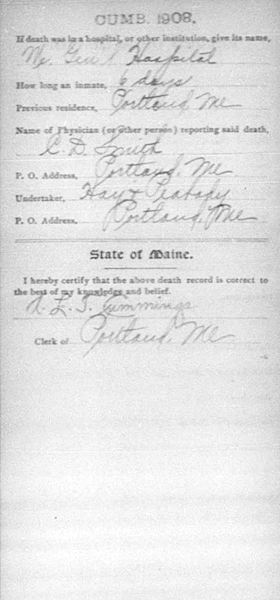 CUMB. 1908.
If death was in a hospital, or other institution, give its name,
Me. Gen'l Hospital
How long an inmate, 6 days
Previous residence, Portland, Me
Name of Physician (or other person) reporting said death,
C. D. Smith
P. O. Address, Portland, Me
Undertaker, Hay & Peabody
P. O. Address, Portland, Me
State of Maine.
I hereby certify that the above death record is correct to
the best of my knowledge and belief.
A. L. T. Cummings
Clerk of Portland, Me